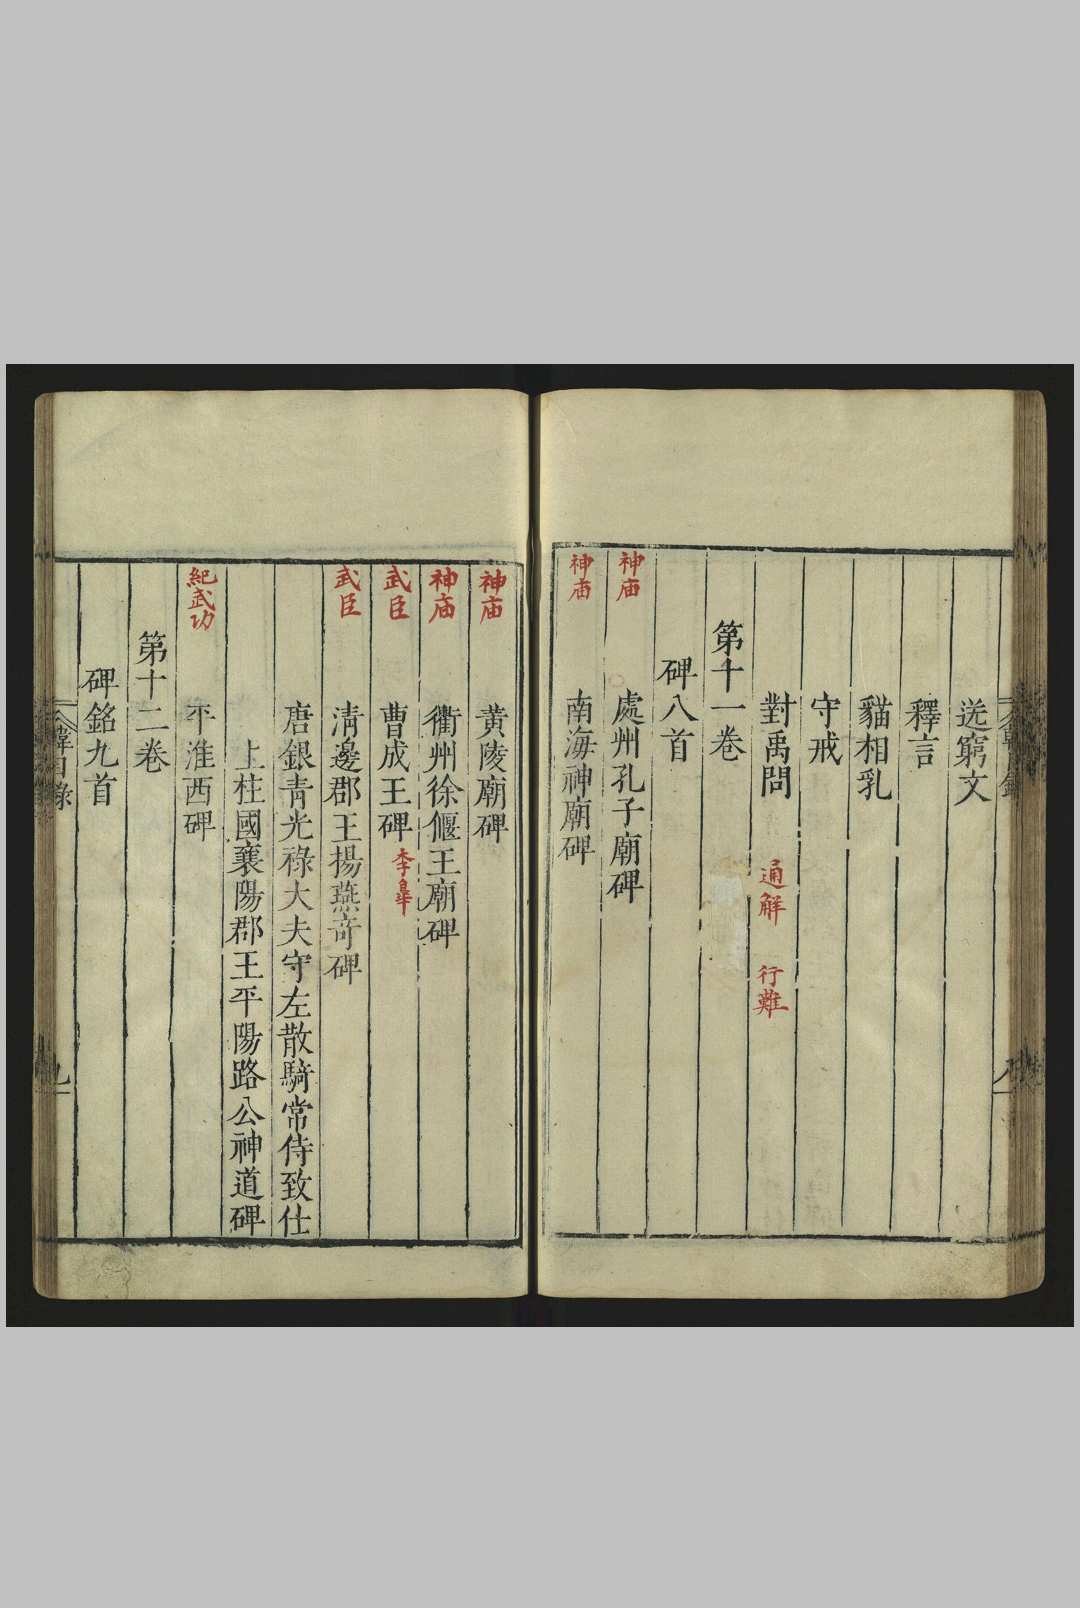 送窮文
釋言
貓相乳
守戒
對禹問 通解 行難
第十一卷
碑八首
神庙 處州孔子廟碑
神庙 南海神廟碑
神庙 黄陵廟碑
神庙 衢州徐偃王廟碑
武臣 曹成王碑 李皋
武臣 清邊郡王楊燕奇碑
唐銀青光祿大夫守左散騎常侍致仕
上柱國襄陽郡王平陽路公神道碑
紀武功 平淮西碑
第十二卷
碑銘九首
韓目錄 九